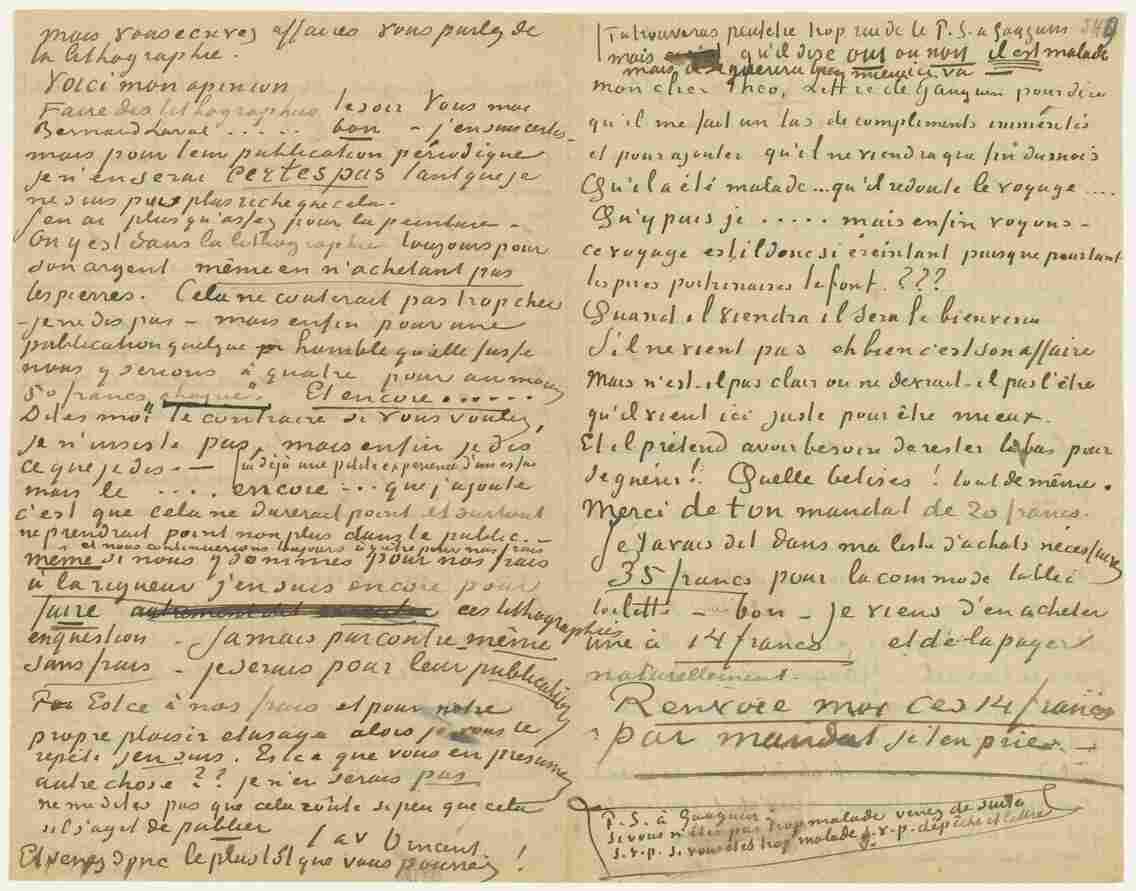 mais vous écrivez affaires vous parlez de
la lithographie.
Voici mon opinion
Faire des lithographies le soir Vous moi
Bernard Laval ..... bon – j'en suis certes –
mais pour leur publication périodique
je n'en serai certes pas tant que je
ne suis pas plus riche que cela.
J'en ai plus qu'assez pour la peinture –
On y est dans la lithographie toujours pour
son argent même en n'achetant pas
les pierres. Cela ne couterait pas trop cher
– je ne dis pas – mais enfin pour une
publication quelque humble qu'elle fusse
nous y serions à quatre pour au moins
50 francs chaque". Et encore ......
Dites moi "le contraire si vous voulez,
je n'insiste pas, mais enfin je dis
ce que je dis. – (j'ai déjà une petite experience d'un essai
mais le .... encore ... que j'ajoute
c'est que cela ne durerait point et surtout
ne prendrait point non plus dans le public. –
et nous continuerions toujours à y être pour nos frais
même si nous y sommes pour nos frais
à la rigueur j'en suis encore pour
faire ces lithographies
en question – Jamais par contre même
sans frais – je serais pour leur publication
Est ce à nos frais et pour notre
propre plaisir et usage alors je vous le
repète j'en suis. Est ce que vous en presumez
autre chose ?? je n'en serais pas
ne me dites pas que cela coûte si peu que cela
s'il s'agit de publier
t. à v. Vincent
Et venez donc le plus tôt que vous pourrez !
Tu trouveras peutêtre trop rude le P.S. à Gauguin
mais qu'il dise oui ou non il est malade
mais il se guerira bien mieux ici. va
mon cher Theo, Lettre de Gauguin pour dire
qu'il me fait un tas de compliments immérités
et pour ajouter qu'il ne viendra que fin du mois
Qu'il a été malade ... qu'il redoute le voyage ....
Qu'y puis je ..... mais enfin voyons –
ce voyage est il donc si éreintant puisque pourtant
les pires poitrinaires le font. ???
Quand il viendra il sera le bienvenu
S'il ne vient pas eh bien c'est son affaire
Mais n'est-il pas clair ou ne devrait-il pas l'être
qu'il vient ici juste pour être mieux.
Et il prétend avoir besoin de rester là bas pour
se guérir! Quelle betises ! tout de même.
Merci de ton mandat de 20 francs.
Je t'avais dit dans ma liste d'achats nécessaires
35 francs pour la commode table à
toilette – bon – je viens d'en acheter
une à 14 francs et de la payer
naturellement.
Renvoie moi ces 14 francs
par mandat je t'en prie. –
P.S. à Gauguin –
si vous n'êtes pas trop malade venez de suite
s.v.p. si vous êtes trop malade s.v.p. dépêche et lettre